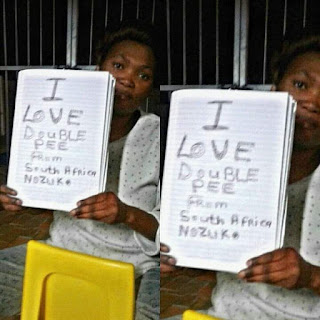 I
LOVE
DOUBLE
PEE
FROM
South AFRICA
NOZUKO
I
LOVE
DOUBLE
PEE
FROM
South AFRICA
NOZUKO